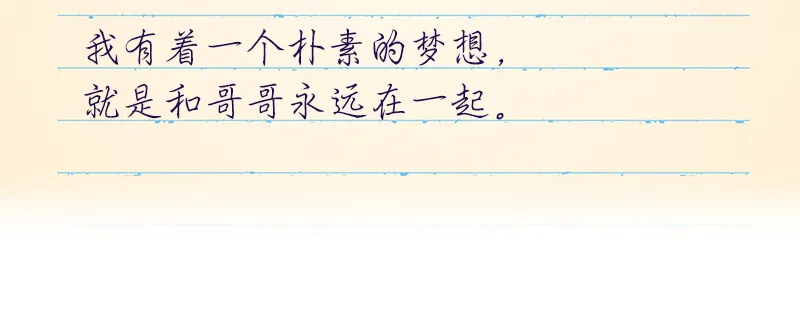 我有着一个朴素的梦想，
就是和哥哥永远在一起。